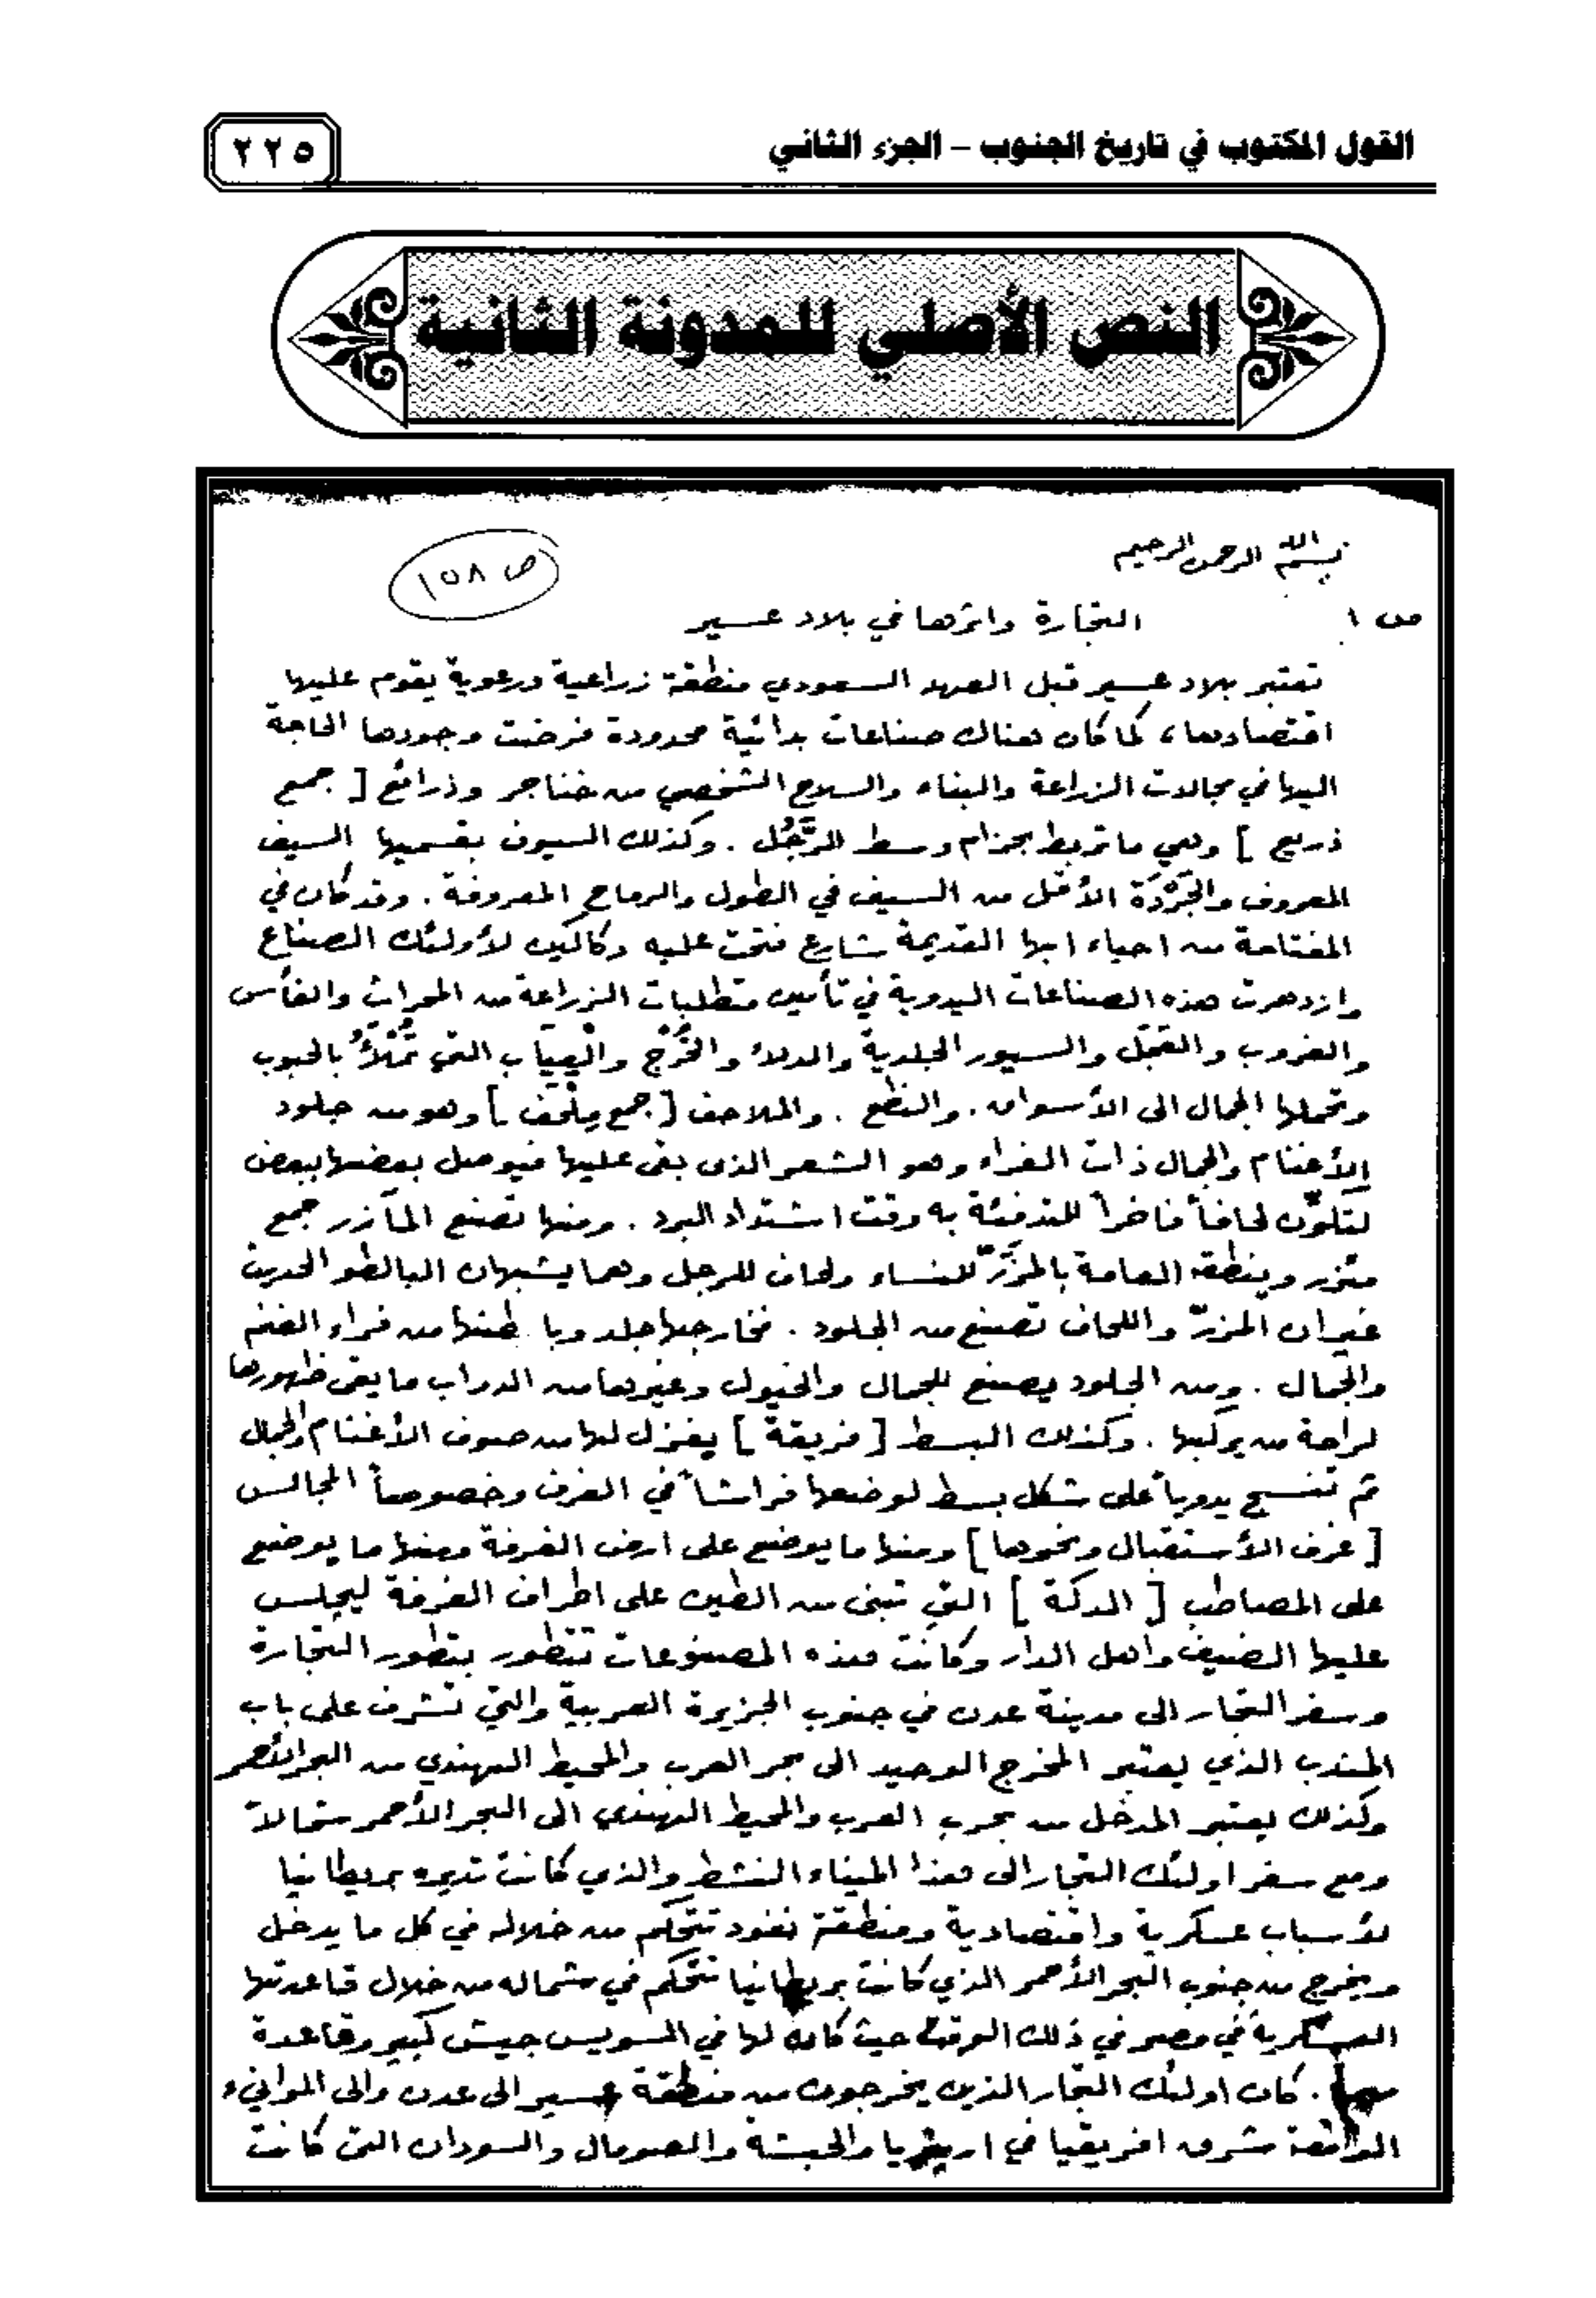 القول المكتوب في تاريخ الجنوب – الجزء الثاني
٢٢٥
النص الأصلي للمدونة الثانية
بسم الله الرحمن الرحيم
ص ١٥٨
ص ١
التجارة واثرها في بلاد عسير
تعتبر بلاد عسير قبل العهد السعودي منطقة زراعية ورعوية يقوم عليها
اقتصادها، كما كان هناك صناعات بدائية محدودة فرضت وجودها الحاجة
اليها في مجالات الزراعة والبناء والسلاح الشخصي من خناجر وذرائع [ جمع
ذريع ] وهي ما تربط بحزام وسط الرَّجُل . وكذلك السيوف بقسميها السيف
المعروف والجَرْدَة الأقل من السيف في الطول والرماح المعروفة . وقد كان في
المفتاحة من احياء ابها القديمة شارع فتحت عليه دكاكين لأولئك الصناع
وازدهرت هذه الصناعات اليدوية في تأمين متطلبات الزراعة من المحراث والفأس
والغروب والعَجَل والسيور الجلدية والدلاء والخُرْج والعِيَاب التي تُمْلَأُ بالحبوب
وتحملها الجمال الى الأسواق . والنطع . والملاحف [ جمع مِلْحَف ] وهو من جلود
الأغنام والجمال ذات الفراء وهو الشعر الذى بقى عليها فيوصل بعضها ببعض
لتكوّن لحافاً فاخراً للتدفئة به وقت اشتداد البرد . ومنها تصنع المآزر جمع
مئزر وينطقه العامة بالمزَرّ للنساء ولحاف للرجل وهما يشبهان البالطو الحديث
غير ان المزرّ واللحاف تصنع من الجلود . فخارجها جلد وباطنها من فراء الغنم
والجمال . ومن الجلود يصنع للجمال والخيول وغيرها من الدواب ما يقى ظهورها
لراحة من يركبها . وكذلك البسط [ فريقة ] يغزل لها من صوف الأغنام والجمال
ثم تنسج يدوياً على شكل بسط لوضعها فراشاً في الغرف وخصوصاً المجالس
[ غرف الأستقبال ونحوها ] ومنها ما يوضع على ارض الغرفة ومنها ما يوضع
على المصاطب [ الدكة ] التي تبنى من الطين على اطراف الغرفة ليجلس
عليها الضيف واهل الدار وكانت هذه المصنوعات تتطور بتطور التجارة
وسفر التجار الى مدينة عدن في جنوب الجزيرة العربية والتي تشرف على باب
المندب الذي يعتبر المخرج الوحيد الى بحر العرب والمحيط الهندي من البحر الأحمر
وكذلك يعتبر المدخل من بحرب العرب والمحيط الهندى الى البحر الأحمر شمالاً
ومع سفر اولئك التجار الى هذا الميناء النشط والذي كانت تديره بريطانيا
لأسباب عسكرية واقتصادية ومنطقة نفوذ تتحكم من خلاله في كل ما يدخل
ويخرج من جنوب البحر الأحمر الذي كانت بريطانيا تتحكم في شماله من خلال قاعدتها
العسكرية في مصر في ذلك الوقت حيث كان لها في السويس جيش كبير وقاعدة
. كان اولئك التجار الذين يخرجون من منطقة عسير الى عدن والى الموانيء
الواقعة شرق افريقيا في اريتريا والحبشة والصومال والسودان التى كانت